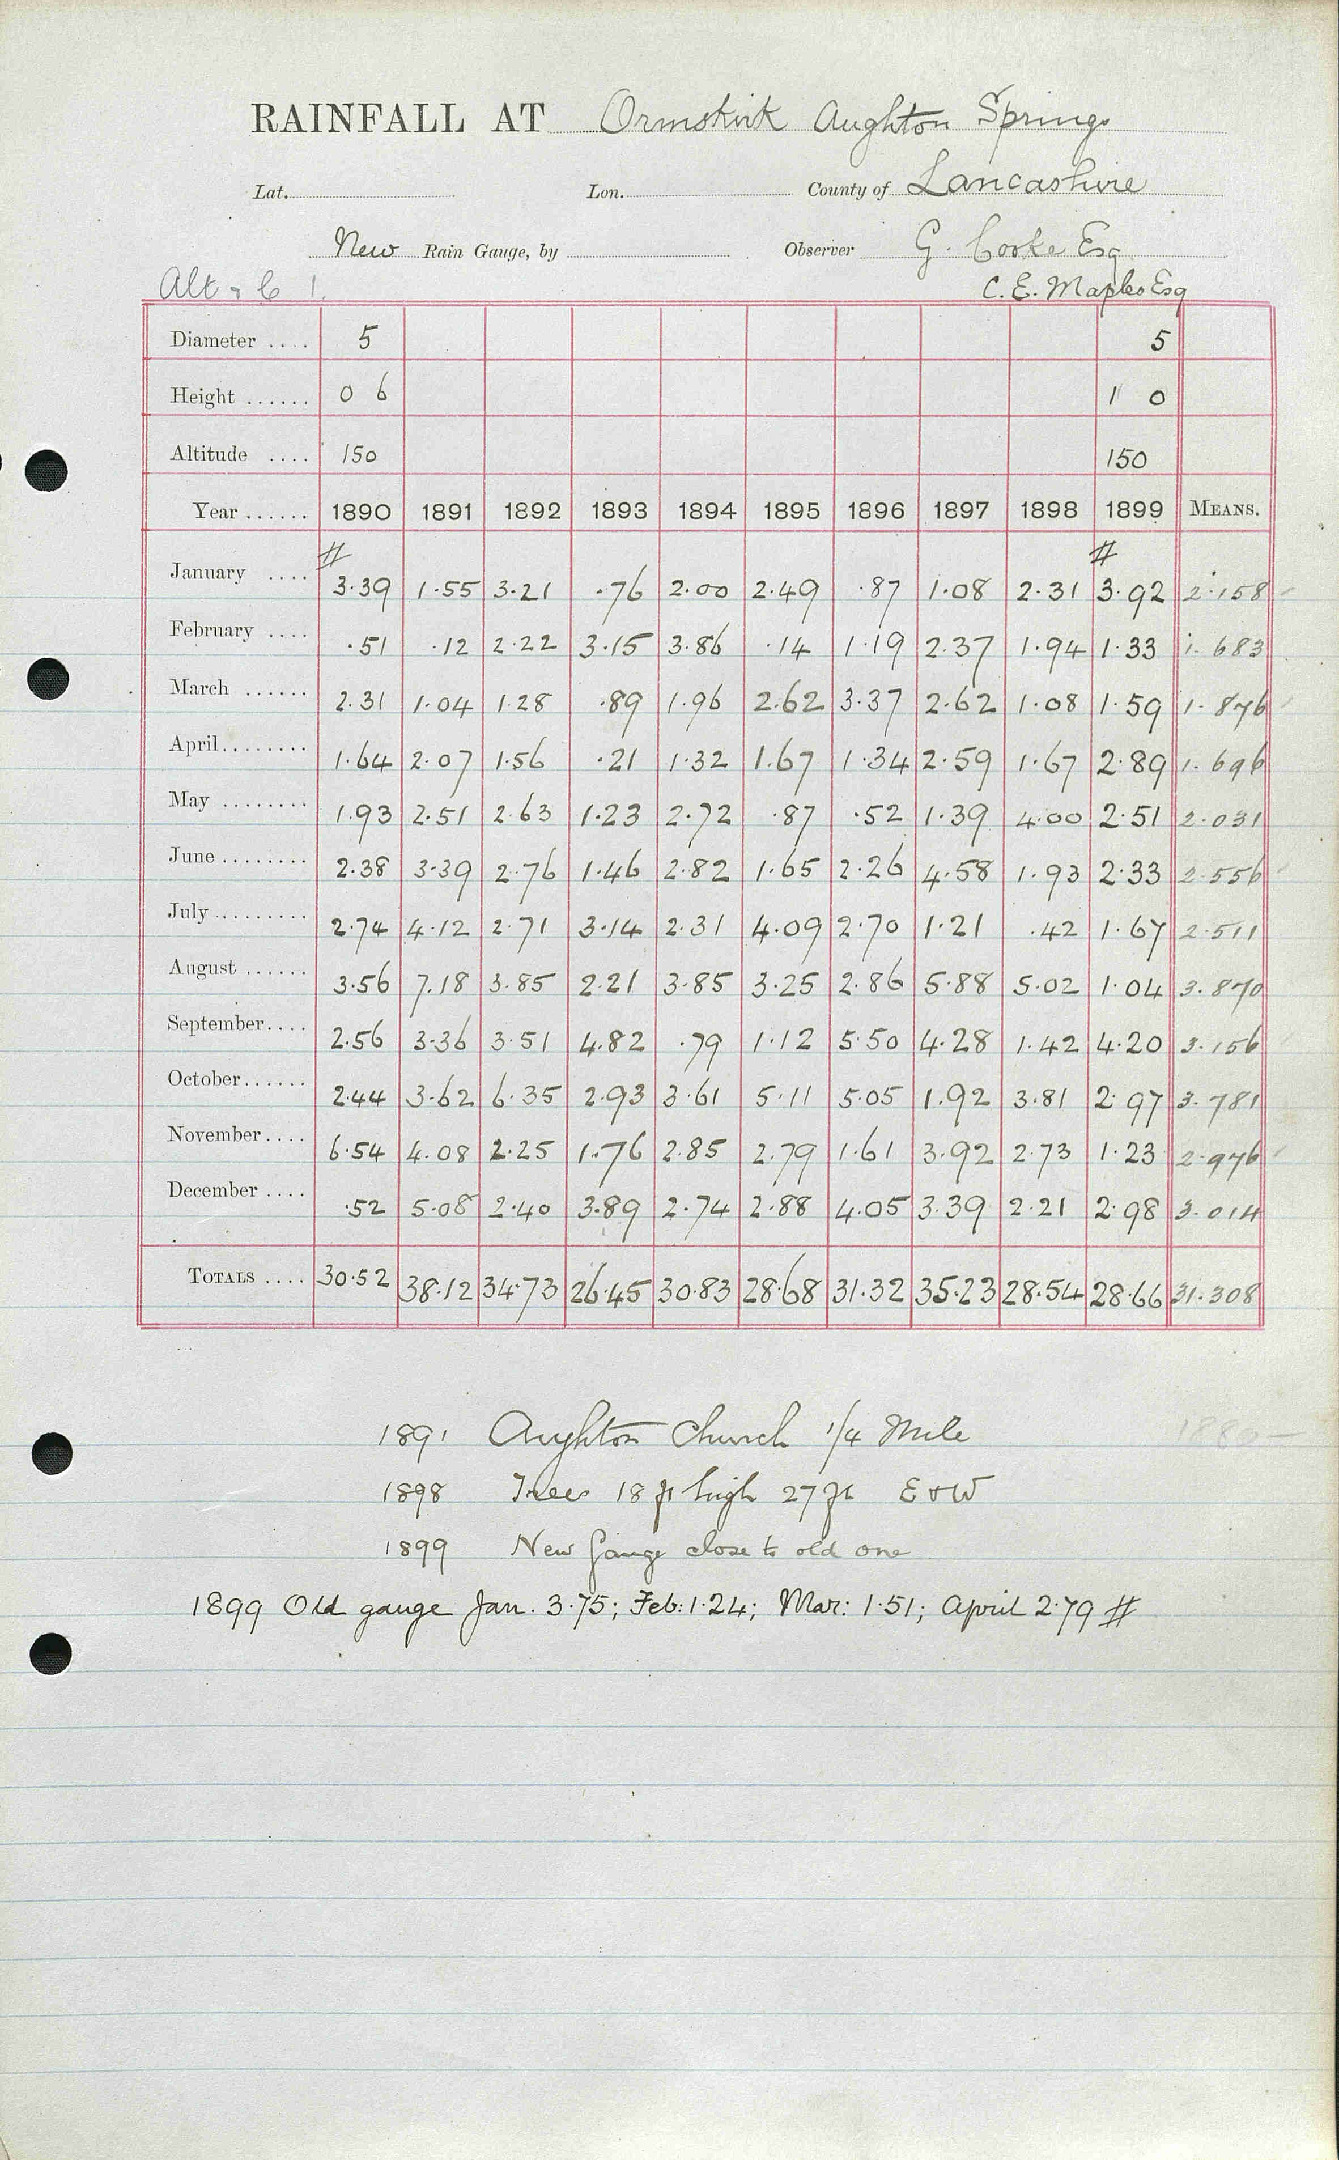 RAINFALL AT Ormskirk Aughton Springs
Lat. Lon. County of Lancashire
New Rain Gauge, by Observer G. Cooke Esq
Alt & C C. E. Maples Esq
Diameter .... 5 5
Height ...... 0 6 1 0
Altitude .... 150 150
Year ...... 1890 1891 1892 1893 1894 1895 1896 1897 1898 1899 MEANS.
# #
January .... 3.39 1.55 3.21 .76 2.00 2.49 .87 1.08 2.31 3.92 2.158
February .... .51 .12 2.22 3.15 3.86 .14 1.19 2.37 1.94 1.33 1.683
March ...... 2.31 1.04 1.28 .89 1.96 2.62 3.37 2.62 1.08 1.59 1.876
April ........ 1.64 2.07 1.56 .21 1.32 1.67 1.34 2.59 1.67 2.89 1.696
May ........ 1.93 2.51 2.63 1.23 2.72 .87 .52 1.39 4.00 2.51 2.031
June ........ 2.38 3.39 2.76 1.46 2.82 1.65 2.26 4.58 1.93 2.33 2.556
July ......... 2.74 4.12 2.71 3.14 2.31 4.09 2.70 1.21 .42 1.67 2.511
August ...... 3.56 7.18 3.85 2.21 3.85 3.25 2.86 5.88 5.02 1.04 3.870
September.... 2.56 3.36 3.51 4.82 .79 1.12 5.50 4.28 1.42 4.20 3.156
October...... 2.44 3.62 6.35 2.93 3.61 5.11 5.05 1.92 3.81 2.97 3.781
November.... 6.54 4.08 2.25 1.76 2.85 2.79 1.61 3.92 2.73 1.23 2.976
December .... .52 5.08 2.40 3.89 2.74 2.88 4.05 3.39 2.21 2.98 3.014
TOTALS .... 30.52 38.12 34.73 26.45 30.83 28.68 31.32 35.23 28.54 28.66 31.308
1891 Aughton Church 1/4 Mile
1898 Trees 18 ft high 27 ft E & W
1899 New Gauge close to old one
1899 Old gauge Jan. 3.75; Feb: 1.24; Mar: 1.51; April 2.79 #